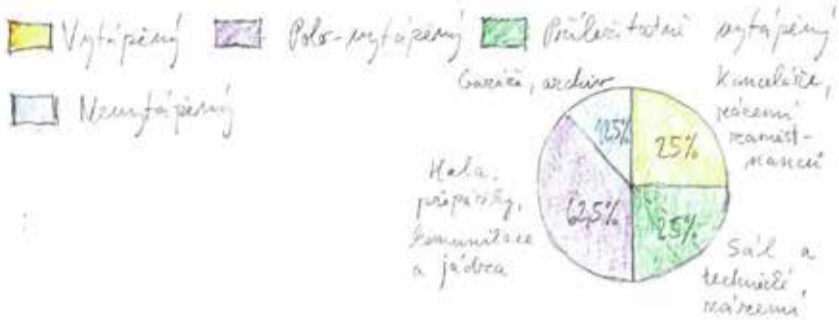 Vytápěný
Polo-vytápěný
Příležitostně vytápěný
Nevytápěný
Garáže, archiv
Kanceláře,
zázemí
zaměst-
nanců
12,5%
25%
62,5%
25%
Hala,
komunikace
a jádra
Sál a
technické
zázemí